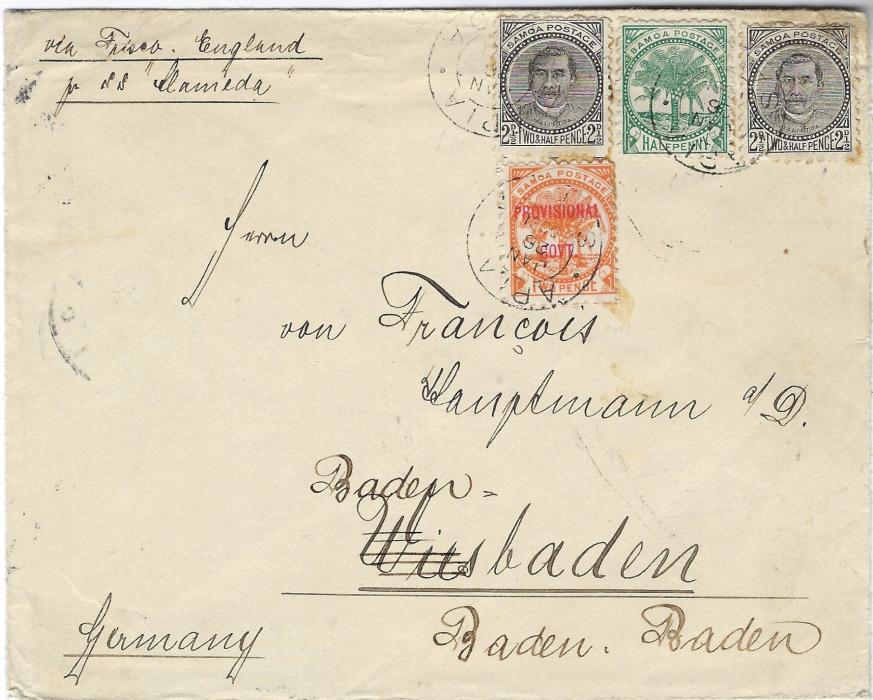 via Frisco. England
pr SS "Alameda"
SAMOA POSTAGE
2½D TWO & HALF PENCE 2½D
SAMOA POSTAGE
HALFPENNY
SAMOA POSTAGE
2½D TWO & HALF PENCE 2½D
APIA
JAN
SAMOA POSTAGE
PROVISIONAL
GOVT.
TWO PENCE
APIA
JAN
Herrn
von François
Hauptmann a/D.
Baden=
Wiesbaden
Baden. Baden
Germany